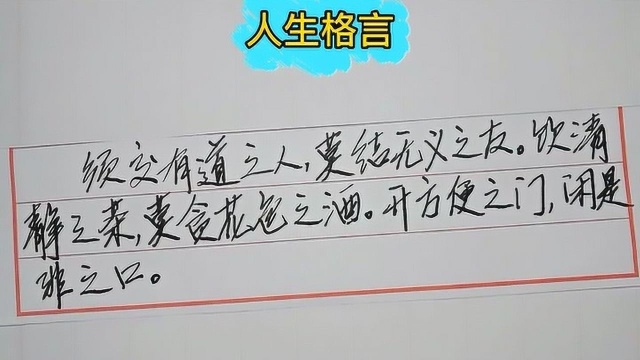 人生格言
须交有道之人,莫结无义之友。饮清
静之茶,莫贪花色之酒。开方便之门,闭是
非之口。